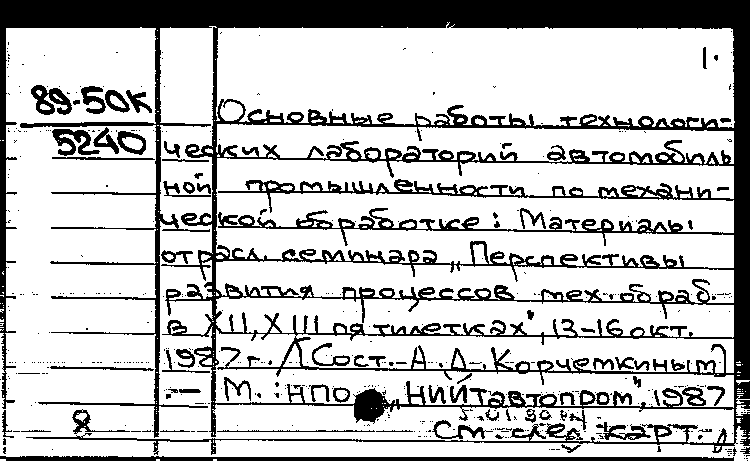 1.
89-50К
5240
Основные работы технологи-
ческих лабораторий автомобиль
ной промышленности по механи-
ческой обработке: Материалы
отрасл. семинара „Перспективы
развития процессов мех. обраб.
в XII, XIII пятилетках", 13-16 окт.
1987 г. /[Сост. А. Д. Корчемкиным]
.— М.: НПО „НИИТавтопром", 1987
8
См. след. карт.